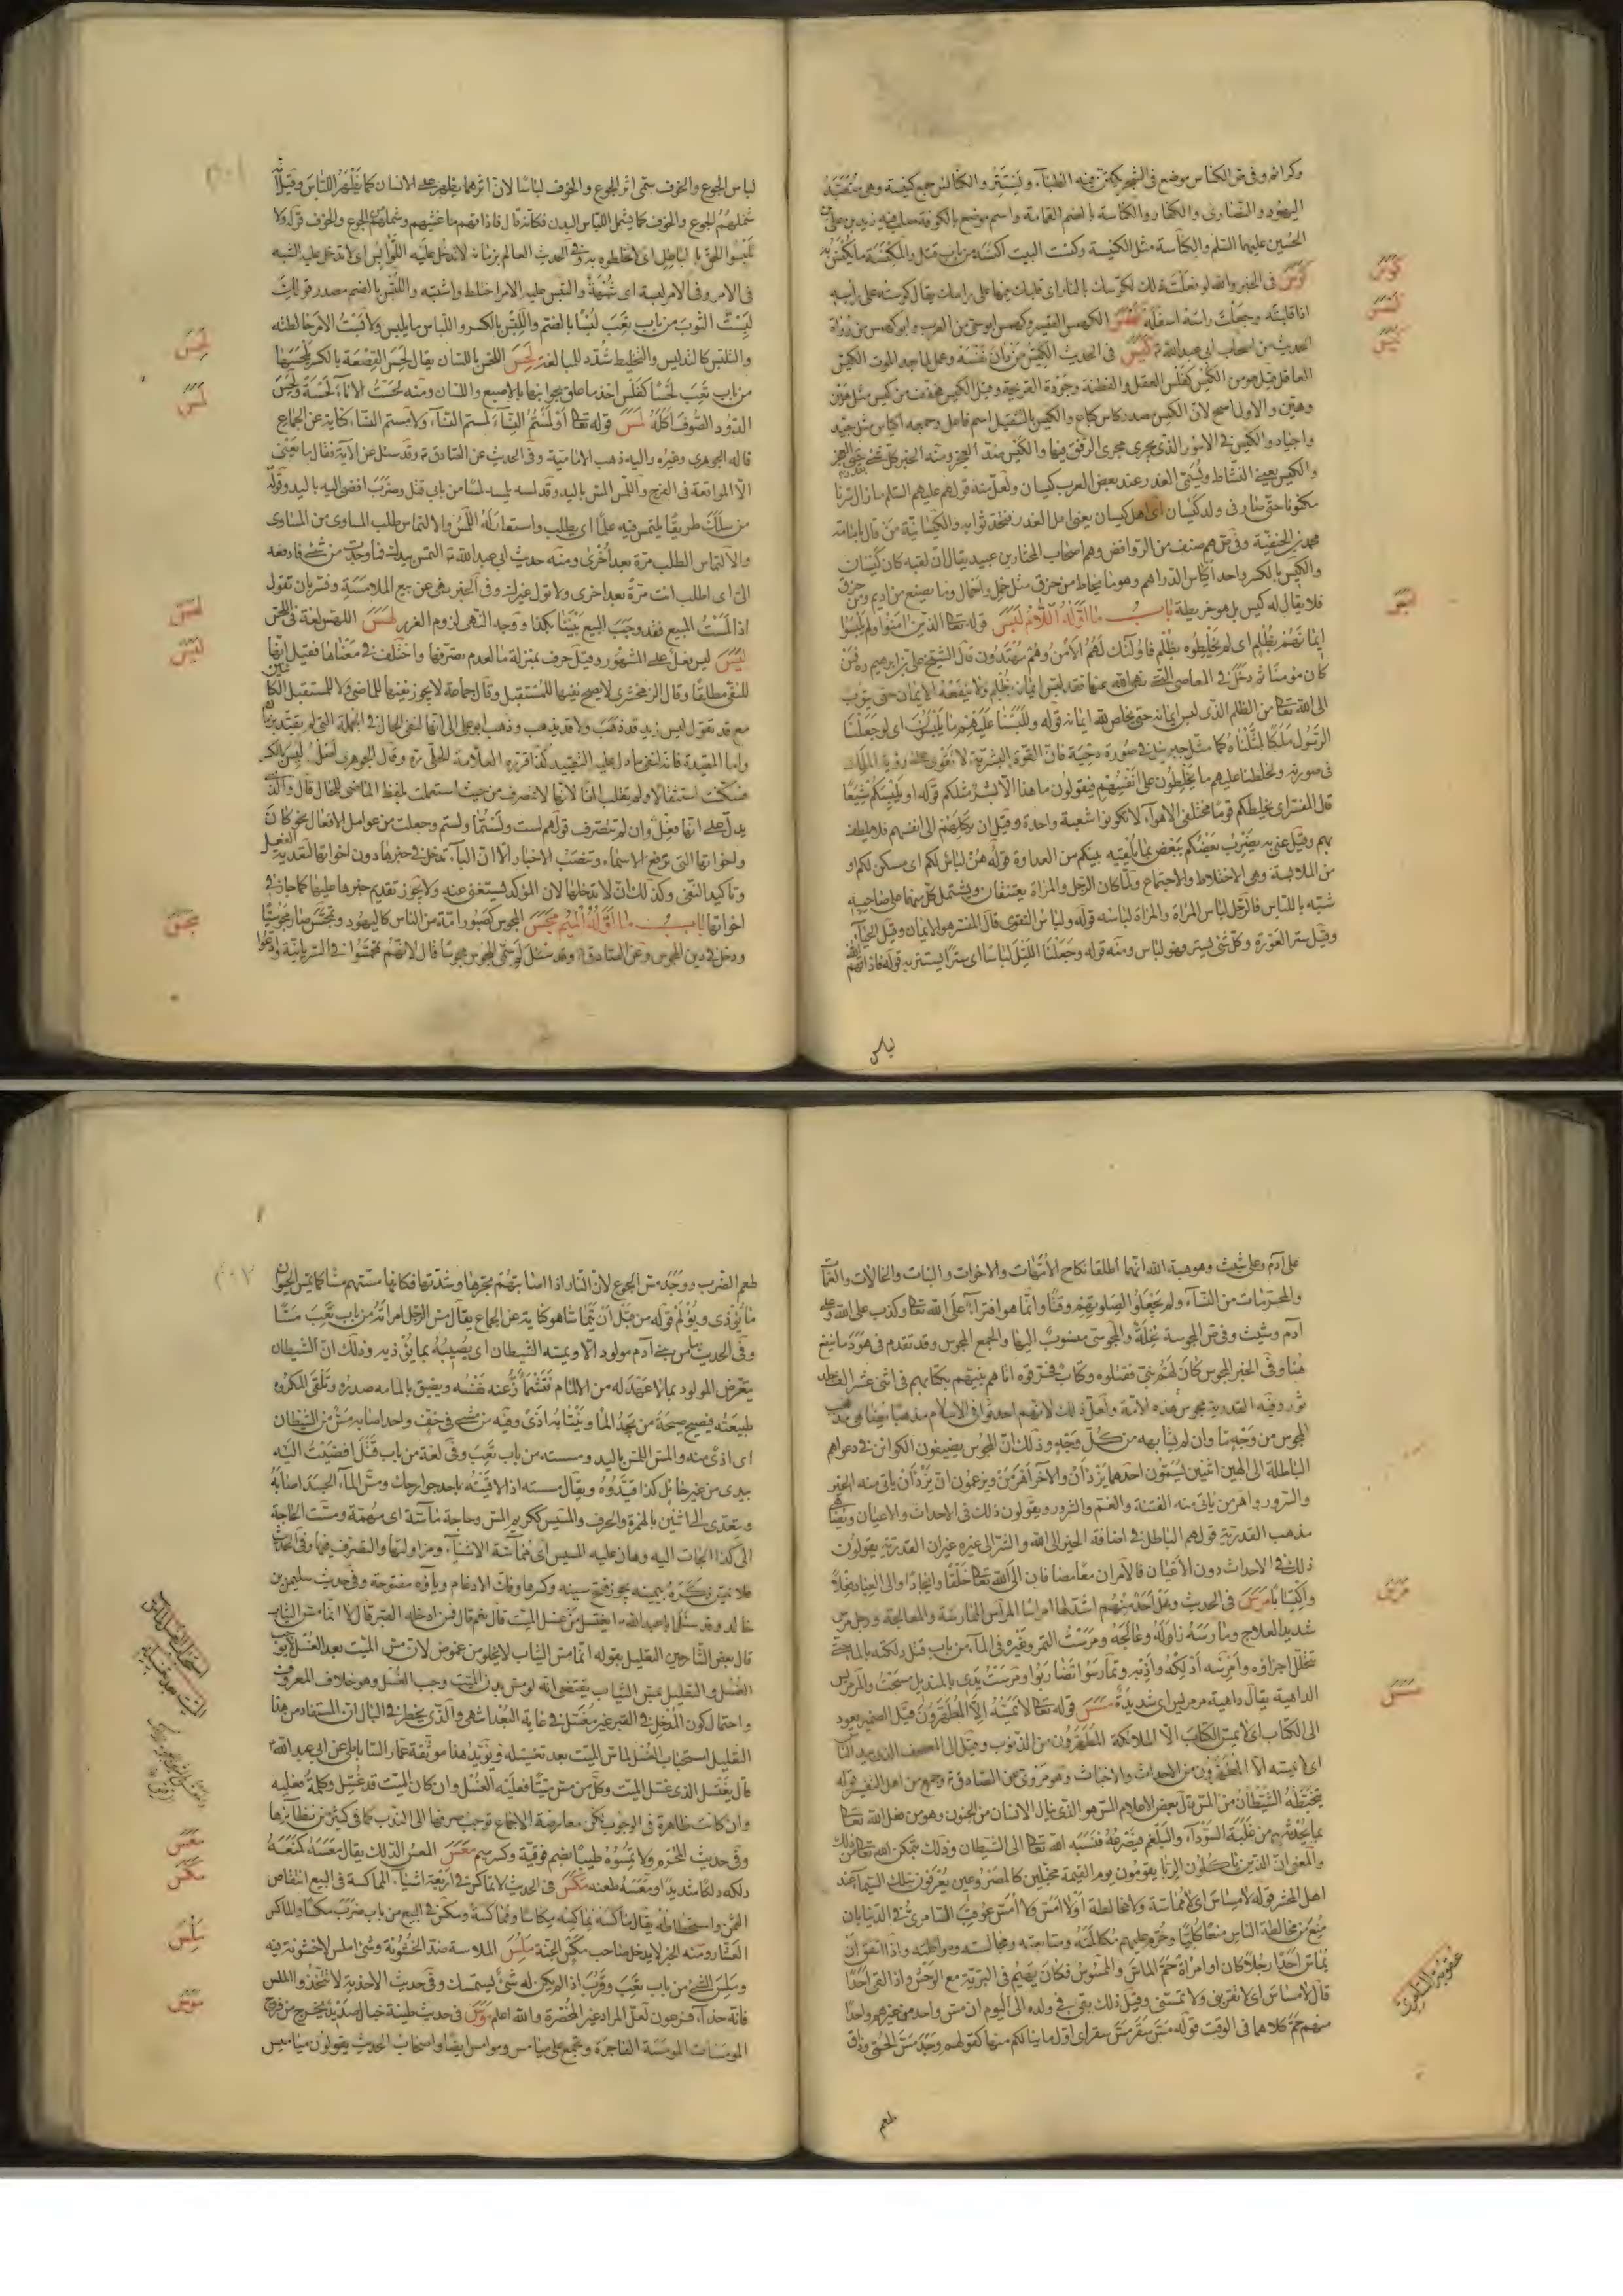 وكرانه وفى ض الكناس موضع فى الشجر يكتن فيه الظباء وتستتر والكنائس جمع كنيسة وهى متعبّد
اليهود والنصارى والكفار والكناسة بالضم القمامة واسم موضع بالكوفة صلب فيه زيد بن على بن
الحسين عليهما السلم والكناسة مثل الكنيسة وكنست البيت اكنسه من باب قتل والمكنسة ما يكنس به
كوس فى الخبر والله لو فعلت ذلك لكوّسك بالنار اى قلبك فيها على راسك يقال كوسته على راسه
اذا قلبته وجعلت راسه اسفله كهمس الكهمس القصير وكهمس ابو حى من العرب وابو كهمس من رواة
الحديث من اصحاب ابى عبدالله كيس فى الحديث الكيّس من دان نفسه وعمل لما بعد الموت الكيس
العاقل قيل هو من الكيس كفلس العقل والفطنة وجودة القريحة وقيل الكيس مخفف من كيّس مثل هين
وهيّن والاول اصح لانّ الكيس مصدر كاس كباع والكيّس بالتثقيل اسم فاعل وجمعه اكياس مثل جيّد
واجياد والكيس فى الامور الذى يجرى مجرى الرفق فيها والكيس ضدّ العجز ومنه الخبر كل شئ
والكيس بمعنى النشاط ويسمّى الغدر عند بعض العرب كيسان ولعل منه قولهم عليهم السلم ما زال سرّنا
مكتوما حتى صار فى ولد كيسان اى اهل كيسان يعنى اهل الغدر والكيسانية من قال بامامة
محمد بن الحنفية وفى ض هم صنف من الروافض وهم اصحاب المختار بن عبيد يقال انّ لقبه كان كيسان
والكيس بالكسر واحد اكياس الدراهم وهو ما يخاط من خرق مثل حمل واحمال وما يصنع من اديم ومن خرق
فلا يقال له كيس بل هو خريطة باب ما اوّله اللام لبس قوله تعا الذين امنوا ولم يلبسوا
ايمانهم بظلم اى لم يخلطوه بظلم فاولئك لهم الامن وهم مهتدون قال الشيخ على بن ابرهيم ره فمن
كان مؤمنا ثم دخل فى المعاصى التى نهى الله عنها فقد لبس ايمانه بظلم ولا ينفعه الايمان حتى يتوب
الى الله تعا من الظلم الذى لبس ايمانه حتى يخلص لله ايمانه قوله وللبسنا عليهم ما يلبسون اى لو جعلنا
الرسول ملكا لمثّلناه كما مثّل جبرئيل فى صورة دحية فانّ القوة البشرية لا تقوى على رؤية الملك
فى صورته ولخلطنا عليهم ما يخلطون على انفسهم فيقولون ما هذا الا بشر مثلكم قوله او يلبسكم شيعا
قال المفسّر اى يخلطكم قوما مختلفى الاهواء لا تكونوا شيعة واحدة وقيل ان يكلهم الى انفسهم فلا يلطف
بهم وقيل عنى به يضرب بعضكم ببعض بما يلقيه بينكم من العداوة قوله هنّ لباس لكم اى سكن لكم او
من الملابسة وهى الاختلاط والاجتماع ولمّا كان الرجل والمرأة يعتنقان ويشتمل كل منهما على صاحبه
شبّه باللباس فالرجل لباس المرأة والمرأة لباسه قوله ولباس التقوى قال المفسر هو الايمان وقيل الحياء
وقيل ستر العورة وكل شئ يستر فهو لباس ومنه قوله وجعلنا الليل لباسا اى سترا يستتر به قوله فاذاقهم الله
لباس
كوس
كهمس
كيس
لبس
لباس الجوع والخوف سمّى اثر الجوع والخوف لباسا لانّ اثرهما يظهر على الانسان كما يظهر اللباس وقيل
شملهم الجوع والخوف كما يشمل اللباس البدن فكانه قال فاذاقهم ما غشيهم وشملهم من الجوع والخوف قوله ولا
تلبسوا الحق بالباطل اى لا تخلطوه به وفى الحديث العالم بزمانه لا تدخل عليه اللوابس اى لا تدخل عليه الشبه
فى الامر وفى الامر لبسة اى شبهة والتبس عليه الامر اختلط واشتبه واللبس بالضم مصدر قولك
لبست الثوب من باب تعب لبسا بالضم واللبس بالكسر واللباس ما يلبس ولابست الامر خالطته
والتلبس كالتدليس والتخليط شدّد للمبالغة لحس اللحس باللسان يقال لحس القصعة بالكسر يلحسها
من باب تعب لحسا كفلس اخذ ما علق بجوانبها بالاصبع واللسان ومنه لحست الاناء لحسة ولحس
الدود الصوف اكله لمس قوله تعا او لمستم النساء لمستم النساء ولامستم النساء كناية عن الجماع
قاله الجوهرى وغيره واليه ذهب الامامية وفى الحديث عن الصادق ع وقد سئل عن الآية فقال ما يعنى
الّا المواقعة فى الفرج واللمس المس باليد وقد لمسه يلمسه لمسا من باب قتل وضرب افضى اليه باليد وقوله
من سلك طريقا يلتمس فيه علما اى يطلب واستعار له اللمس والالتماس طلب المساوى من المساوى
والالتماس الطلب مرة بعد اخرى ومنه حديث ابى عبدالله ع التمس بيدك فما وجدت من شئ فادفعه
الىّ اى اطلب انت مرة بعد اخرى ولا تول غيرك وفى الخبر نهى عن بيع الملامسة وفسّر بان تقول
اذا لمست المبيع فقد وجب البيع بيننا بكذا ووجه النهى لزوم الغرر لهس اللهس لغة فى اللحس
ليس ليس فعل على المشهور وقيل حرف بمنزلة ما لعدم تصرفها واختلف فى معناها فقيل انها
للنفى مطلقا وقال الزمخشرى لا يصح نفيها للمستقبل وقال جماعة لا يجوز نفيها للماضى ولا للمستقبل
مع قد تقول ليس زيد قد ذهب ولا قد يذهب وذهب ابو على الى انها لنفى الحال فى الجملة التى لم تقيّد بزمان
واما المقيدة فانه لنفى ما دل عليه التقييد كذا قرره العلامة الحلّى ره وقال الجوهرى اصل ليس ليس بالكسر
فسكّنت استثقالا ولم تقلب الفا لانها لا تتصرف من حيث استعملت بلفظ الماضى للحال قال والذى
يدل على انها فعل وان لم تتصرف قولهم لست ولستما ولستم وجعلت من عوامل الافعال نحو كان
واخواتها التى ترفع الاسماء وتنصب الاخبار الّا ان الباء تدخل فى خبرها دون اخواتها لتعدية الفعل
وتاكيد النفى وكذلك ان لا تدخلها لان المؤكد يستغنى عنه ولا يجوز تقديم خبرها عليها كما جاز فى
اخواتها باب ما اوّله الميم مجس المجوس كصبور امة من الناس كاليهود وتمجّس صار مجوسيا
ودخل فى دين المجوس وعن الصادق ع وقد سئل لم سمّى المجوس مجوسا قال لانهم تمجسوا فى السريانية وادّعوا
لحس
لمس
لهس
ليس
مجس
على آدم وعلى شيث وهو هبة الله انهما اطلقا نكاح الامهات والاخوات والبنات والخالات والعمات
والمحرّمات من النساء ولم يجعلوا لصلوتهم وقتا وانما هو افتراء على الله تعا وكذب على الله وعلى
آدم وشيث وفى ض المجوسة نحلة والمجوسى منسوب اليها والجمع المجوس وقد تقدم فى هود ما ينفع
هنا وفى الخبر المجوس كان لهم نبى فقتلوه وكتاب فحرقوه اتاهم نبيهم بكتابهم فى اثنى عشر الف جلد
ثور وفيه القدرية مجوس هذه الامة ولعل ذلك لانهم احدثوا فى الاسلام مذهبا يضاهى مذهب
المجوس من وجه ما وان لم يشابهه من كل وجه وذلك انّ المجوس يضيفون الكوائن فى دعواهم
الباطلة الى الهين اثنين يسمّون احدهما يزدان والآخر اهرمن ويزعمون ان يزدان ياتى منه الخير
والسرور واهرمن ياتى منه الفتنة والغم والشرور ويقولون ذلك فى الاحداث والاعيان ويضاهى
مذهب القدرية قولهم الباطل فى اضافة الخير الى الله والشر الى غيره غير ان القدرية يقولون
ذلك فى الاحداث دون الاعيان فالامران معا مضافان الى الله تعا خلقا وايجادا والى العباد فعلا
واكتسابا مرس فى الحديث وهل احد منهم اشد لها مراسا المراس الممارسة والمعالجة ورجل مرس
شديد العلاج ومارسه زاوله وعالجه ومرست التمر وغيره فى الماء من باب قتل دلكته بالماء حتى
تتحلل اجزاؤه وتمارسوا تضاربوا ومرست يدى بالمنديل مسحت والمرمريس
الداهية يقال داهية مرمريس اى شديدة مسس قوله تعا لا يمسّه الا المطهرون قيل الضمير يعود
الى الكتاب اى لا يمس الكتاب الا الملائكة المطهرون من الذنوب وقيل الى المصحف الذى بيد الناس
اى لا يمسه الا المطهرون من الاحداث والاخباث وهو مروى عن الصادق ع وجمع من اهل التفسير قوله
يتخبطه الشيطان من المس قال بعض الاعلام المس هو الذى ينال الانسان من الجنون وهو من فعل الله تعا
بما يحدثه من غلبة السوداء والبلغم فيصرعه فنسبه الله تعا الى الشيطان وذلك بتمكن الله تعا من ذلك
والمعنى انّ الذين ياكلون الربا يقومون يوم القيمة مخبلين كالمصروعين يعرفون بتلك السيماء عند
اهل المحشر قوله لا مساس اى لا مماسة ولا مخالطة او لا امس ولا امس عوقب السامرى فى الدنيا بان
منع من مخالطة الناس منعا كليا وحرّم عليهم مكالمته ومبايعته ومجالسته ومواكلته واذا اتفق ان
يماس احدا رجلا كان او امرأة حمّ الماسّ والممسوس فكان يهيم فى البرية مع الوحش واذا لقى احدا
قال لا مساس اى لا تقربنى ولا تمسنى وقيل ذلك بقى فى ولده الى اليوم ان مس واحد من غيرهم واحدا
منهم حمّ كلاهما فى الوقت قوله مس سقر اى اول ما ينالكم منها كقولهم وجد مس الحمّى وذاق
طعم
مرس
مسس
عقوبة السامرى
طعم الضرب ووجد مس الجوع لانّ النار اذا اصابتهم بحرها وشدتها فكانها مستهم مسا كما يمس الحيوان
ما يؤذى ويؤلم قوله من قبل ان يتماسّا هو كناية عن الجماع يقال مس الرجل امرأته من باب تعب مسّا
وفى الحديث ما من بنى آدم مولود الا ويمسه الشيطان اى يصيبه بما يؤذيه وذلك انّ الشيطان
يتعرض المولود بما لا عهد له من الالمام فتشمأز عنه نفسه ويضيق بالمامه صدره وتلقى المكروه
طبيعته فيصيح صيحة من يجد الما ويتاب به اذى وفيه من مشى فى خف واحد اصابه مس من الشيطان
اى اذى منه والمس اللمس باليد ومسسته من باب تعب وفى لغة من باب قتل افضيت اليه
بيدى من غير حائل كذا قيّدوه ويقال مسسته اذا لاقيته باحد جوارحك ومس الماء الجسد اصابه
ويتعدى الى اثنين بالهمزة والحرف والمسيس ككريم المس وحاجة ماسّة اى مهمة ومست الحاجة
الى كذا الجات اليه وهان عليه المسيس اى مماسة الاشياء ومزاولتها والتصرف فيها وفى الحديث
لا تمس ذكره بيمينه يجوز فتح سينه وكسرها وفك الادغام وباؤه مفتوحة وفى حديث سليمن بن
خالد وقد سئل ابا عبدالله ايغتسل من غسل الميت قال نعم قال فمن ادخله القبر قال لا انما مس الثياب
قال بعض الشارحين التعليل بقوله انما مس الثياب لا يخلو من غموض لان مس الميت بعد الغسل لا يوجب
الغسل والتعليل بمس الثياب يقتضى انه لو مس بدن الميت وجب الغسل وهو خلاف المعروف
واحتمال كون المدخل فى القبر غير مغتسل فى غاية البعد انتهى والذى يخطر فى البال ان المستفاد من هذا
التعليل استحباب الغسل لماس الميت بعد تغسيله ويؤيد هذا موثقة عمار الساباطى عن ابى عبدالله
قال يغتسل الذى غسل الميت وكل من مس ميتا فعليه الغسل وان كان الميت قد غسل وكلمة فعليه
وان كانت ظاهرة فى الوجوب لكن معارضة الاجماع توجب صرفها الى الندب كما فى كثير من نظائرها
وفى حديث المحرم ولا تمسوه طيبا بضم فوقية وكسر ميم معس المعس الدلك يقال معسه كمنعه
دلكه دلكا شديدا ومعسه طعنه مكس فى الحديث لا تماكس فى اربعة اشياء المماكسة فى البيع انتقاص
الثمن واستحطاطه يقال ماكسه يماكسه مكاسا ومماكسة ومكس فى البيع من باب ضرب مكسا والماكس
العشّار ومنه الخبر لا يدخل صاحب مكس الجنة ملس الملاسة ضد الخشونة وشئ املس لا خشونة فيه
وملس الشئ من باب تعب وقرب اذا لم يكن له شئ يستمسك وفى حديث الاحذية لا تتخذوا الملس
فانه حذاء فرعون لعل المراد غير المخصرة والله اعلم موس فى حديث طينة خبال صديد يخرج من فروج
المومسات المومسة الفاجرة وتجمع على ميامس وموامس ايضا واصحاب الحديث يقولون مياميس
معس
مكس
ملس
موس